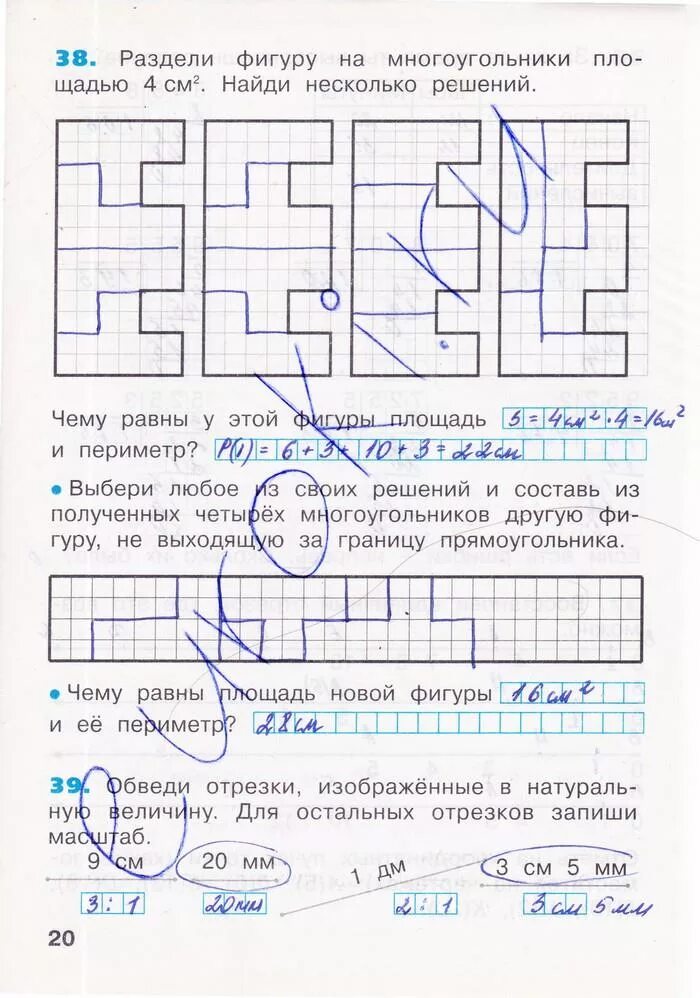 38. Раздели фигуру на многоугольники пло-
щадью 4 см². Найди несколько решений.
Чему равны у этой фигуры площадь S = 4 см² · 4 = 16 см²
и периметр? P(1) = 6 + 3 + 10 + 3 = 22 см
• Выбери любое из своих решений и составь из
полученных четырёх многоугольников другую фи-
гуру, не выходящую за границу прямоугольника.
• Чему равны площадь новой фигуры 16 см²
и её периметр? 28 см
39. Обведи отрезки, изображённые в натураль-
ную величину. Для остальных отрезков запиши
масштаб.
9 см 20 мм 1 дм 3 см 5 мм
3 : 1 20мм 2 : 1 3 см 5 мм
20